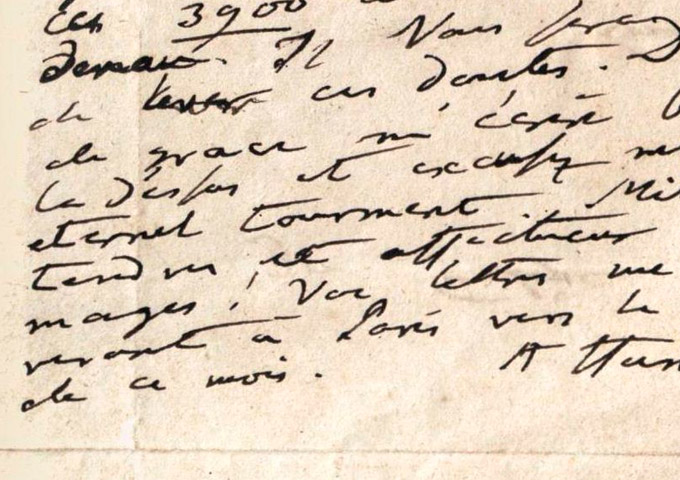 ces 3900
demain. Il vous sera
de lever ces doutes.
de grace m'écrire
la déssus et excusez
eternel tourment. Mi
tendres et affectueux
mages! Vos lettres me
vront à Paris vers le
de ce mois. A Hum